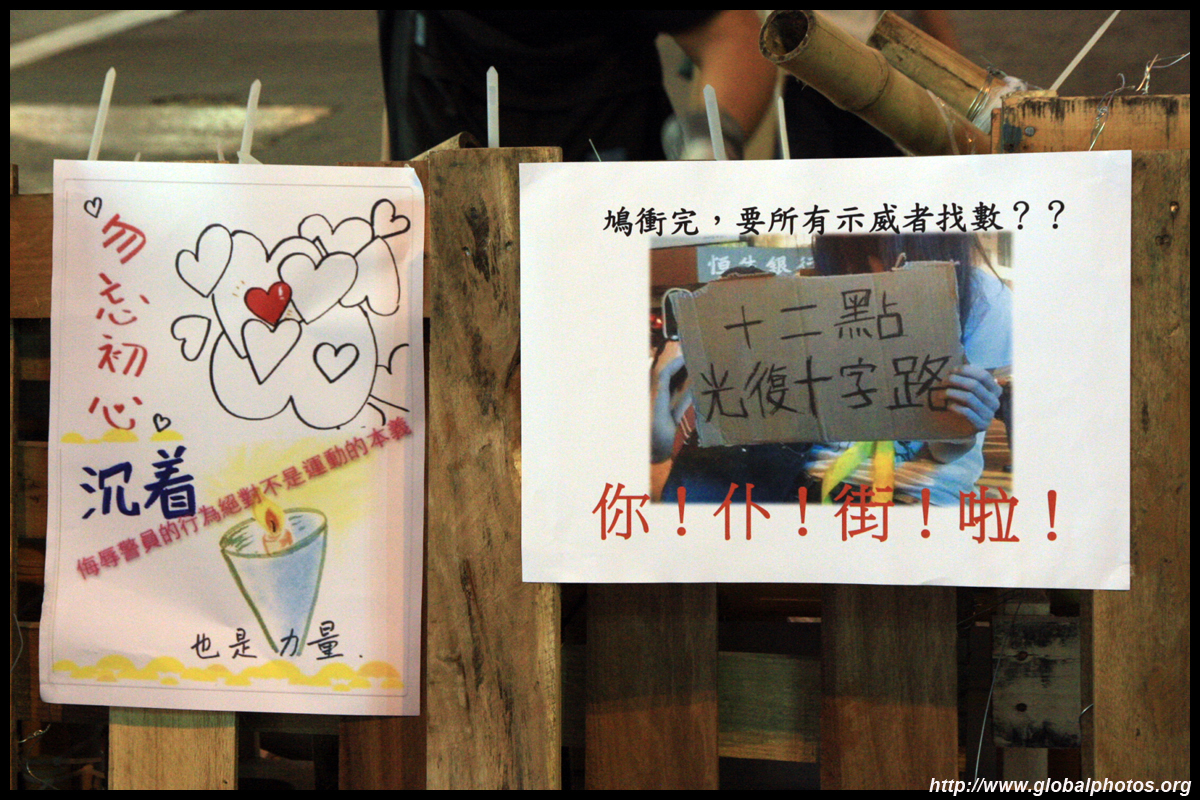 勿忘初心
沉着
侮辱警員的行為絕對不是運動的本義
也是力量.
鳩衝完，要所有示威者找數？？
恒生銀行
十二點
光復十字路
你！仆！街！啦！
http://www.globalphotos.org